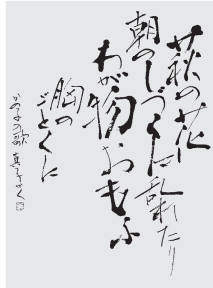 萩の花に
朝のしづくに乱れたり
わが物おもふ
胸の
ごとくに
かの子の歌 真子かく